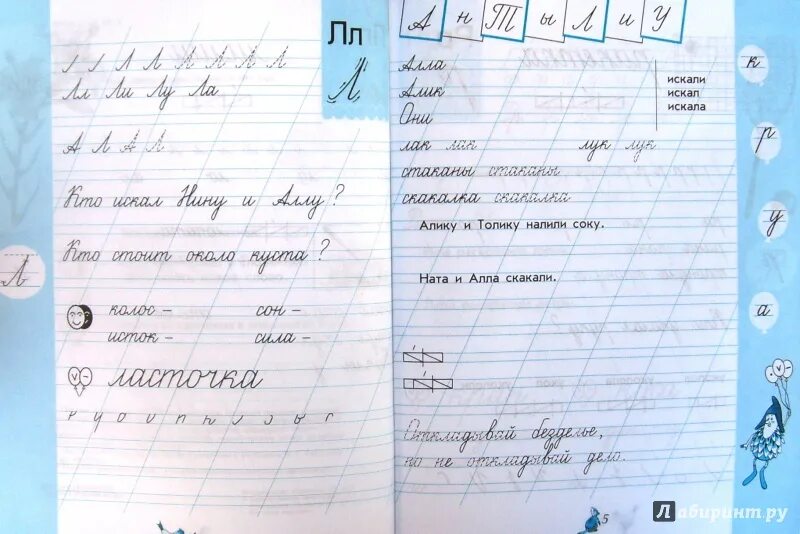 Лл
Л
Л Л Л Л Л
Лл Ли Лу Ла
А Л А Л
Кто искал Нину и Аллу ?
Кто стоит около куста ?
Л
колос – сон –
исток – сила –
ласточка
А н Т ы Л и У
Алла
Алик
Они
искали
искал
искала
лак лак лук лук
стаканы стаканы
скакалка скакалка
Алику и Толику налили соку.
Ната и Алла скакали.
Откладывай безделье,
но не откладывай дело.
к
р
у
а
5
Лабиринт.ру